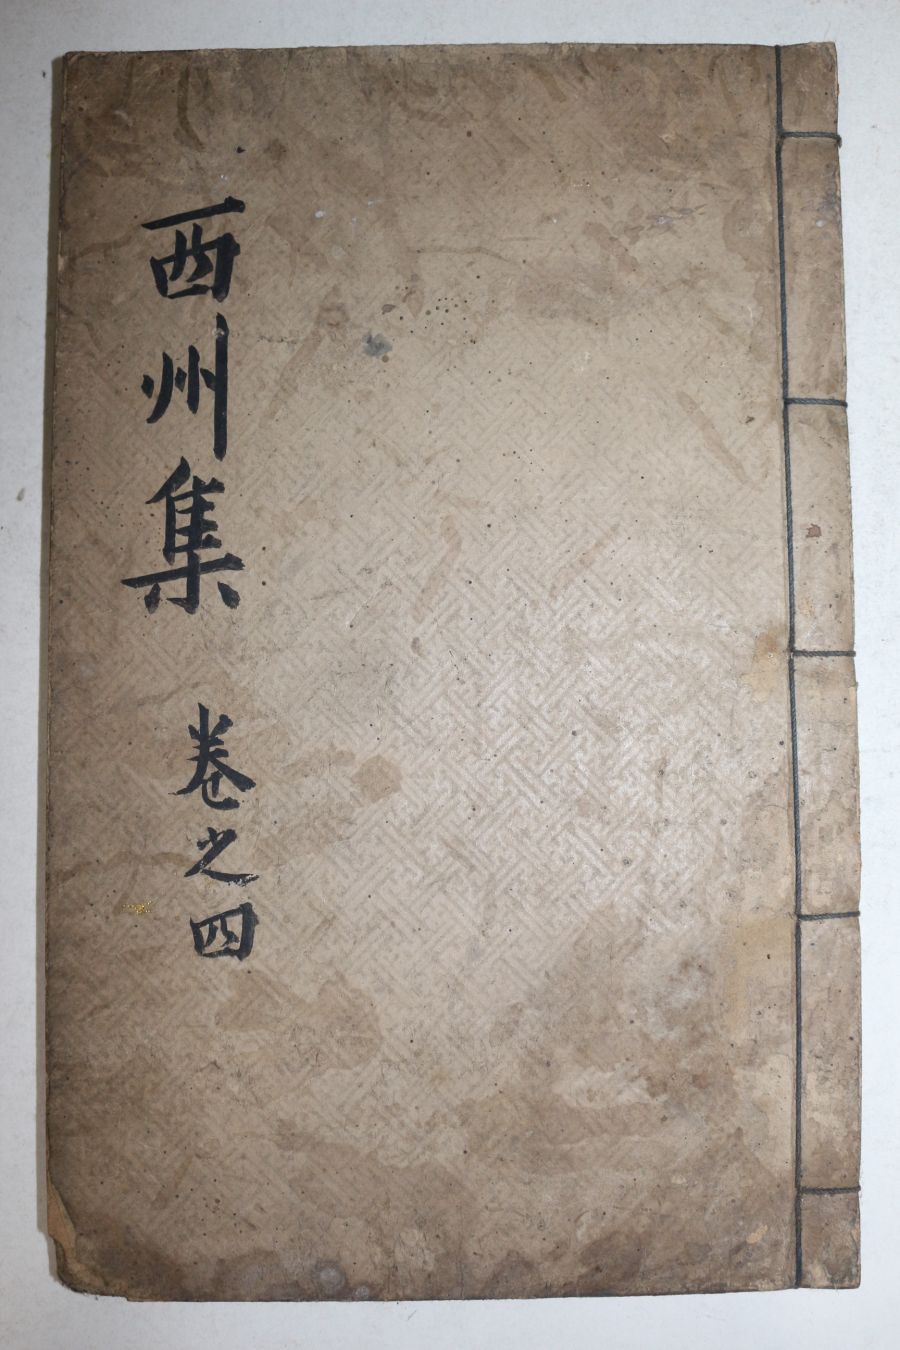 西州集
卷之四